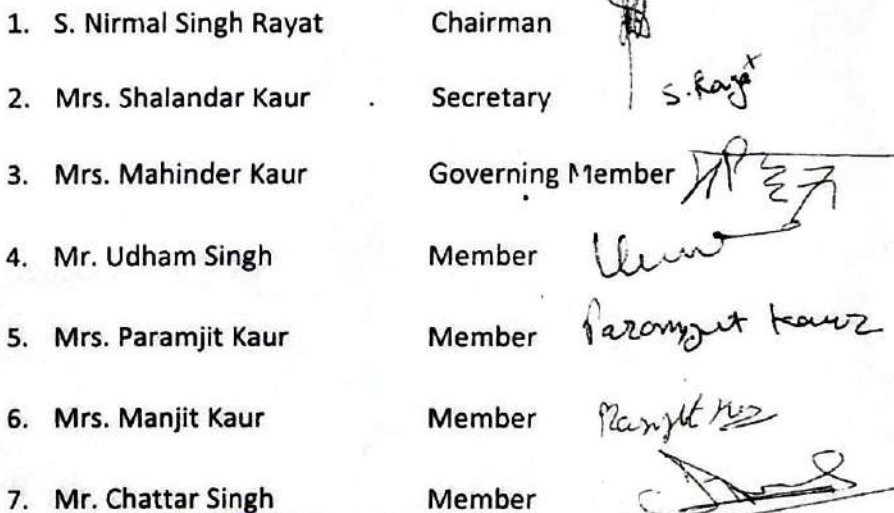 1. S. Nirmal Singh Rayat Chairman
2. Mrs. Shalandar Kaur Secretary S. Rayat
3. Mrs. Mahinder Kaur Governing Member
4. Mr. Udham Singh Member
5. Mrs. Paramjit Kaur Member Paramjit Kaur
6. Mrs. Manjit Kaur Member Manjit
7. Mr. Chattar Singh Member